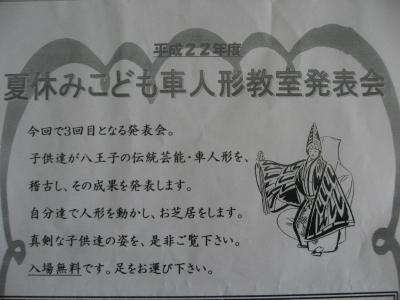 平成２２年度
夏休みこども車人形教室発表会
今回で3回目となる発表会。
子供達が八王子の伝統芸能・車人形を、
稽古し、その成果を発表します。
自分達で人形を動かし、お芝居をします。
真剣な子供達の姿を、是非ご覧下さい。
入場無料です。足をお運び下さい。